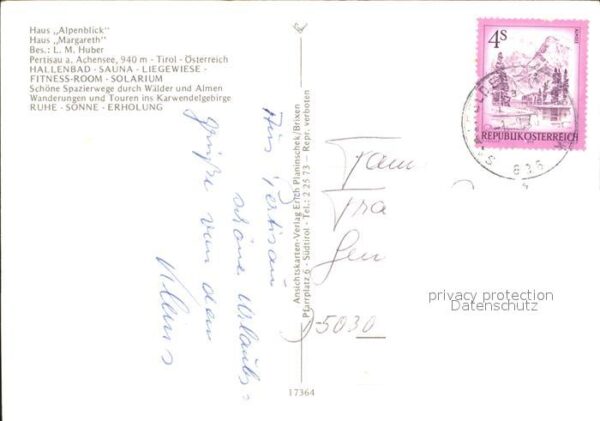 Haus „Alpenblick"
Haus „Margareth"
Bes.: L. M. Huber
Pertisau a. Achensee, 940 m - Tirol - Österreich
HALLENBAD - SAUNA - LIEGEWIESE -
FITNESS-ROOM - SOLARIUM
Schöne Spazierwege durch Wälder und Almen
Wanderungen und Touren ins Karwendelgebirge
RUHE - SONNE - ERHOLUNG
Aus Pertisau
schöne Urlaubs-
grüße von den
Ansichtskarten-Verlag Erich Planinschek/Brixen
Pfarrplatz 6 - Südtirol - Tel.: 2 25 73 - Repr. verboten
17364
4s
REPUBLIK ÖSTERREICH
Fam
Fra
Gen
5030
privacy protection
Datenschutz